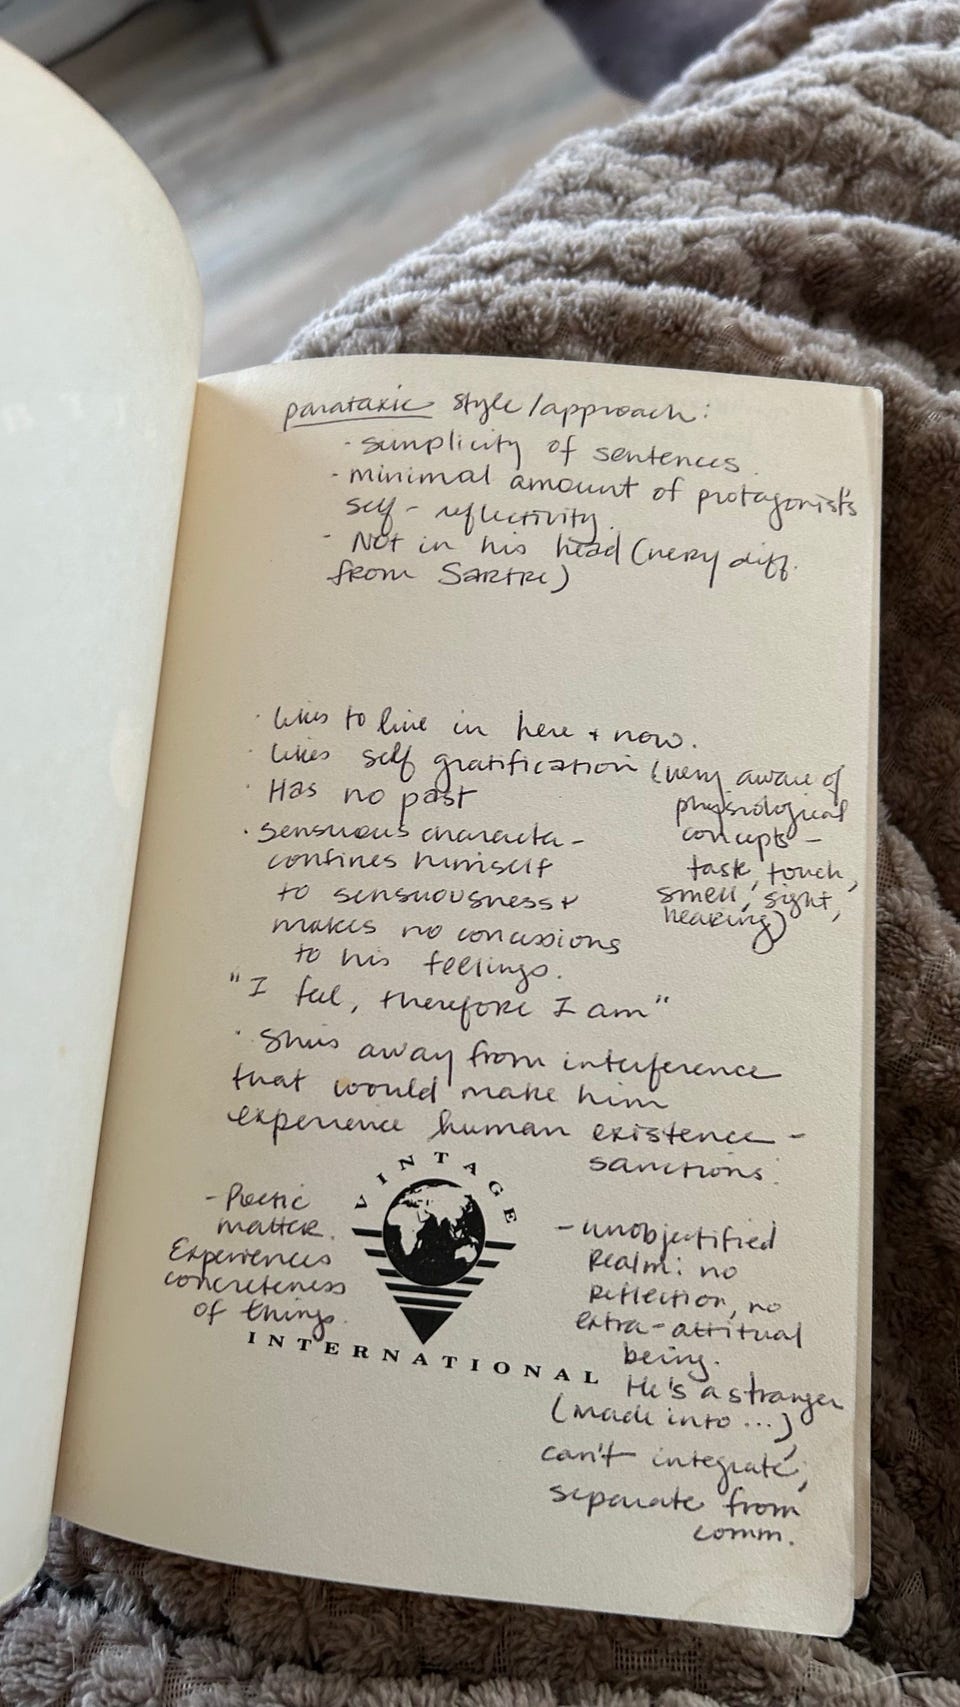 parataxic style/approach:
- simplicity of sentences.
- minimal amount of protagonist's
self-reflectivity.
- Not in his head (very diff.
from Sartre)
· likes to live in here + now.
· likes self gratification (very aware of
physiological
concepts -
task, touch,
smell, sight,
hearing)
· Has no past
· sensuous character -
confines himself
to sensuousness +
makes no concessions
to his feelings.
"I feel, therefore I am"
· Shies away from interference
that would make him
experience human existence -
sanctions.
- Poetic
matter.
Experiences
concreteness
of things.
VINTAGE
INTERNATIONAL
- unobjectified
Realm: no
reflection, no
extra-attitual
being.
He's a stranger
(made into...),
can't integrate,
separate from
comm.